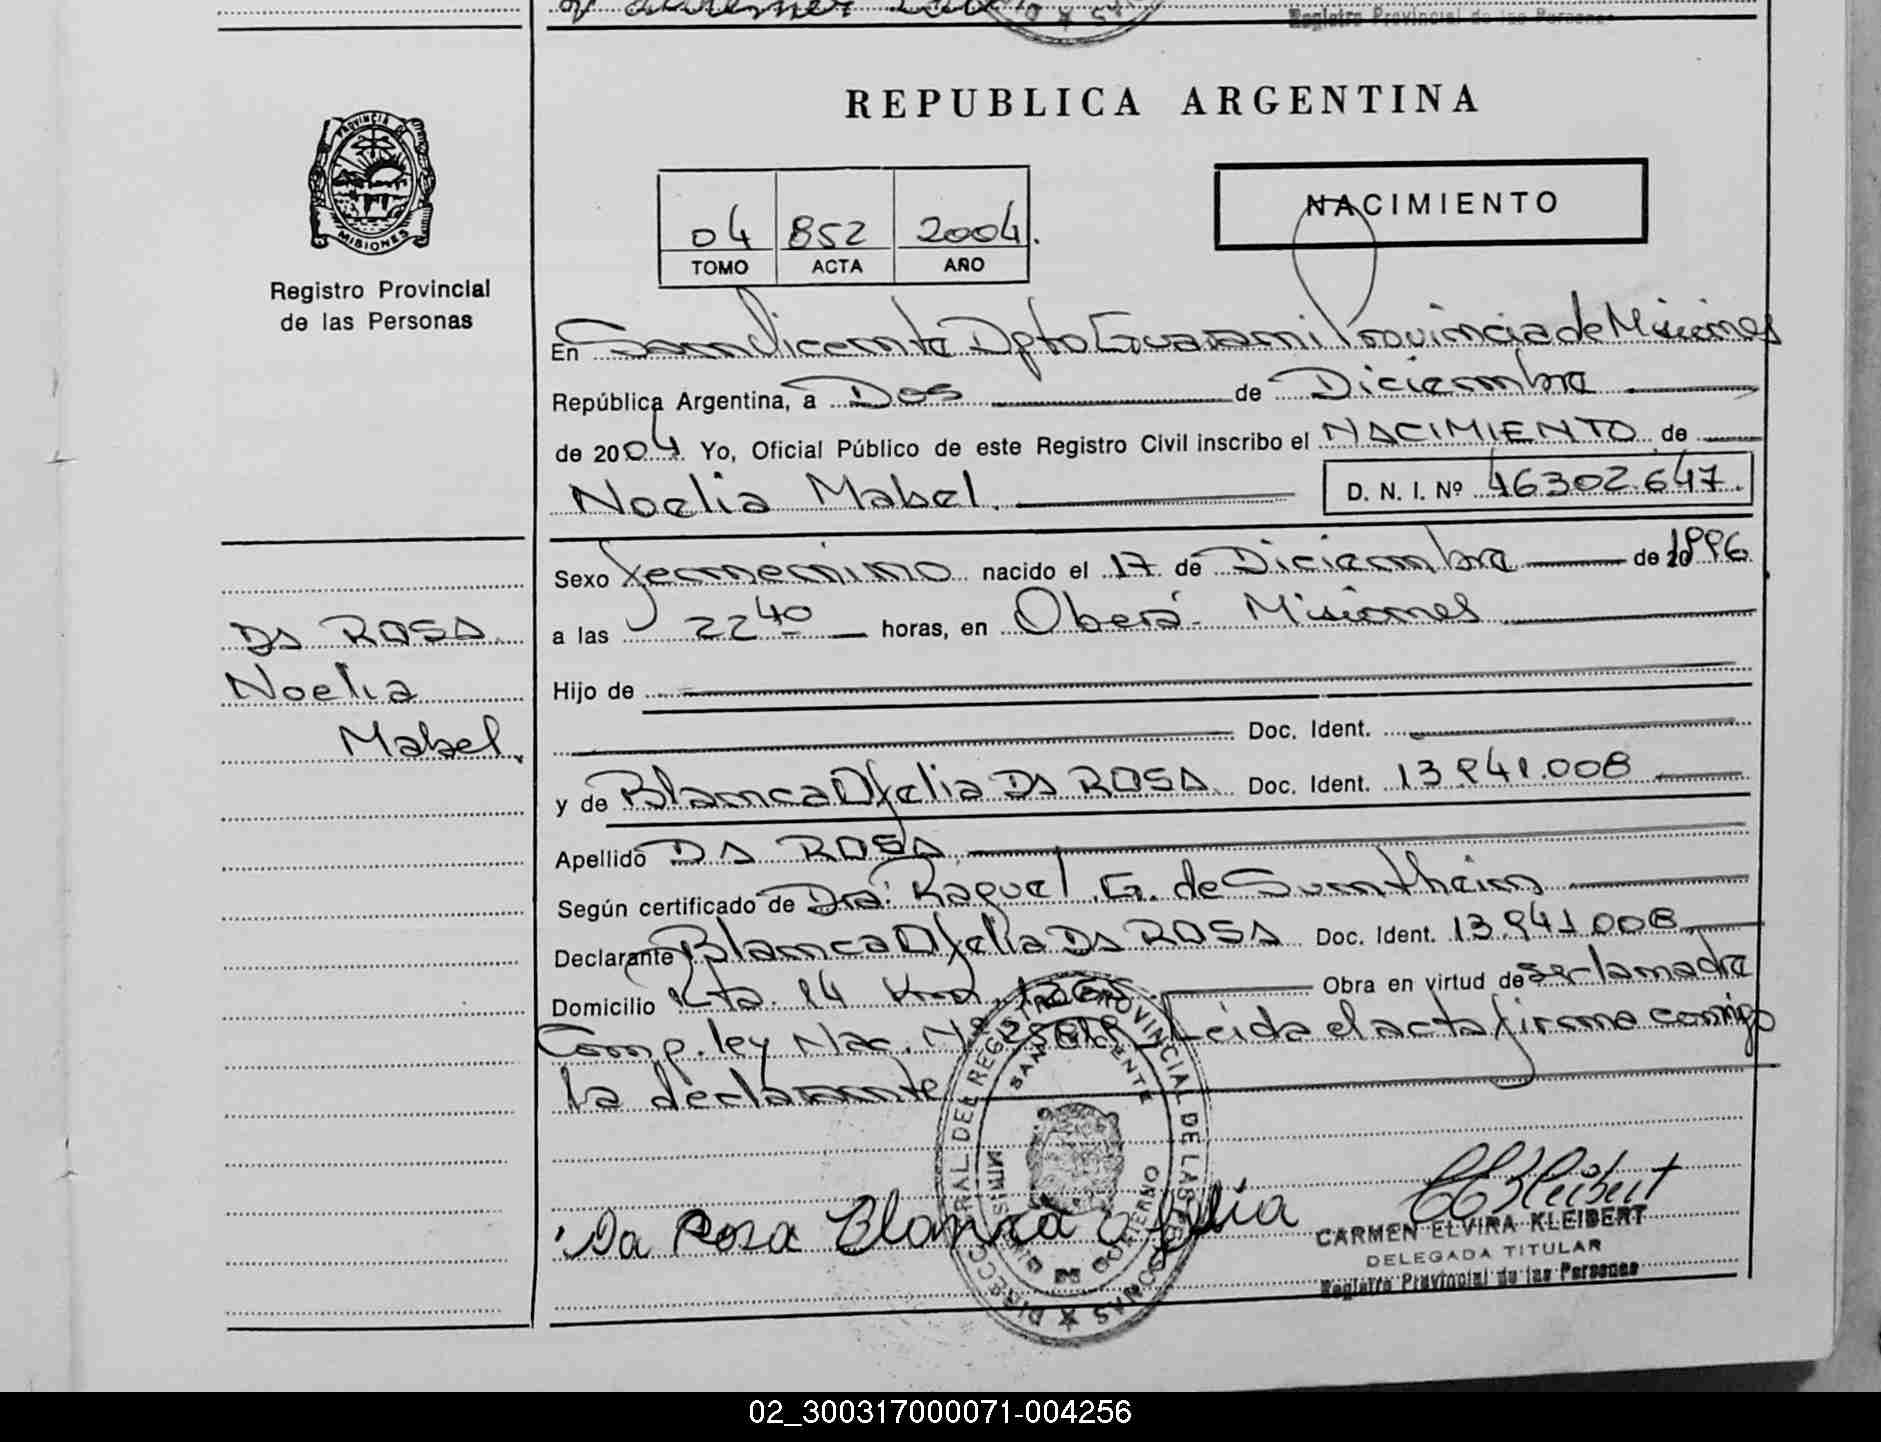 REPUBLICA ARGENTINA
PROVINCIA DE
MISIONES
Registro Provincial
de las Personas
04 852 2004.
TOMO ACTA AÑO
NACIMIENTO
En San Vicente Dpto Guarani Provincia de Misiones
República Argentina, a Dos de Diciembre
de 2004 Yo, Oficial Público de este Registro Civil inscribo el NACIMIENTO de
Noelia Mabel. D. N. I. Nº 46302.647.
Sexo femenino nacido el 17 de Diciembre de 1996
a las 22 40 horas, en Oberá - Misiones
Hijo de
Doc. Ident.
y de Blanca Ofelia DA ROSA Doc. Ident. 13.941.008
Apellido DA ROSA
Según certificado de Dra. Raquel G. de
Declarante Blanca Ofelia DA ROSA Doc. Ident. 13.941.008
Domicilio Rta. 14 Km Obra en virtud de ser la madre
Comp. ley Nac. Nº Leida el acta firma conmigo
la declarante
DA ROSA
Noelia
Mabel.
Da Rosa Blanca Ofelia
DIRECCION GRAL. DEL REGISTRO PROVINCIAL DE LAS PERSONAS
SAN VICENTE
MINIST. DE GOBIERNO
C E Kleibert
CARMEN ELVIRA KLEIBERT
DELEGADA TITULAR
Registro Provincial de las Personas
02_300317000071-004256